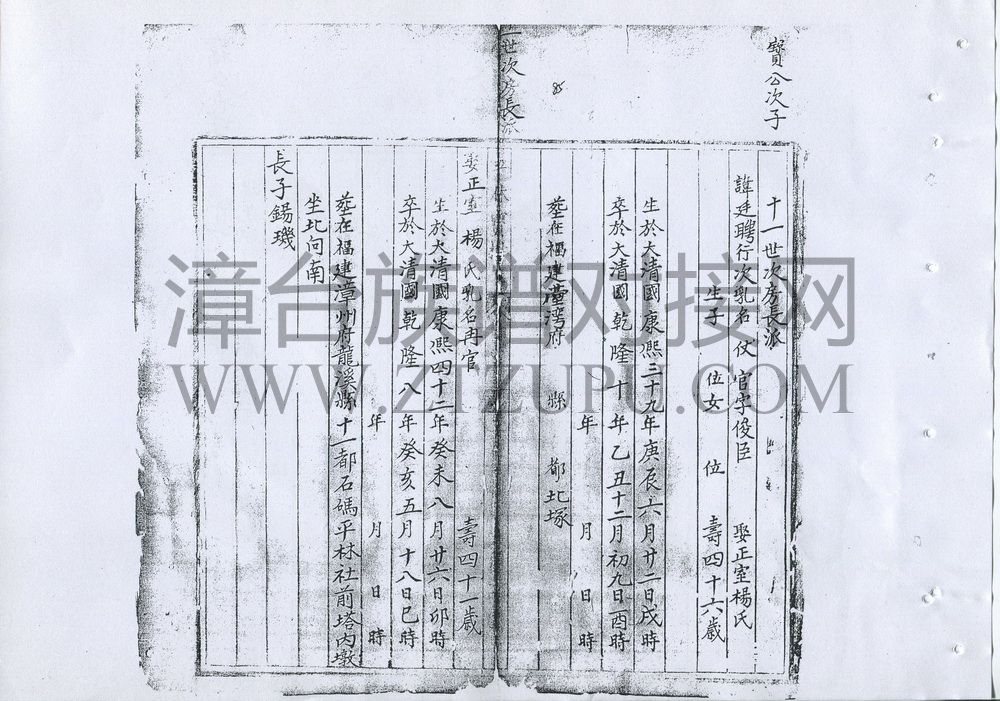 寶公次子
十一世次房長派
諱廷聘行次乳名 仗 官字俊臣 娶正室楊氏
生子 位女 位 壽四十六歲
生於大清國康熙三十九年庚辰六月廿二日戌時
卒於大清國乾隆十年乙丑十二月初九日酉時
年 月 日 時
塟在福建臺湾府 縣 都北塚
85
世次房長派
娶正室楊氏乳名冉官 壽四十一歲
生於大清國康熙四十二年癸未八月廿六日卯時
卒於大清國乾隆八年癸亥五月十八日巳時
年 月 日 時
塟在福建漳州府龍溪縣十一都石碼平林社前塔内墩
坐北向南
長子錫璣
漳台族谱对接网
WWW.ZTZUPU.COM